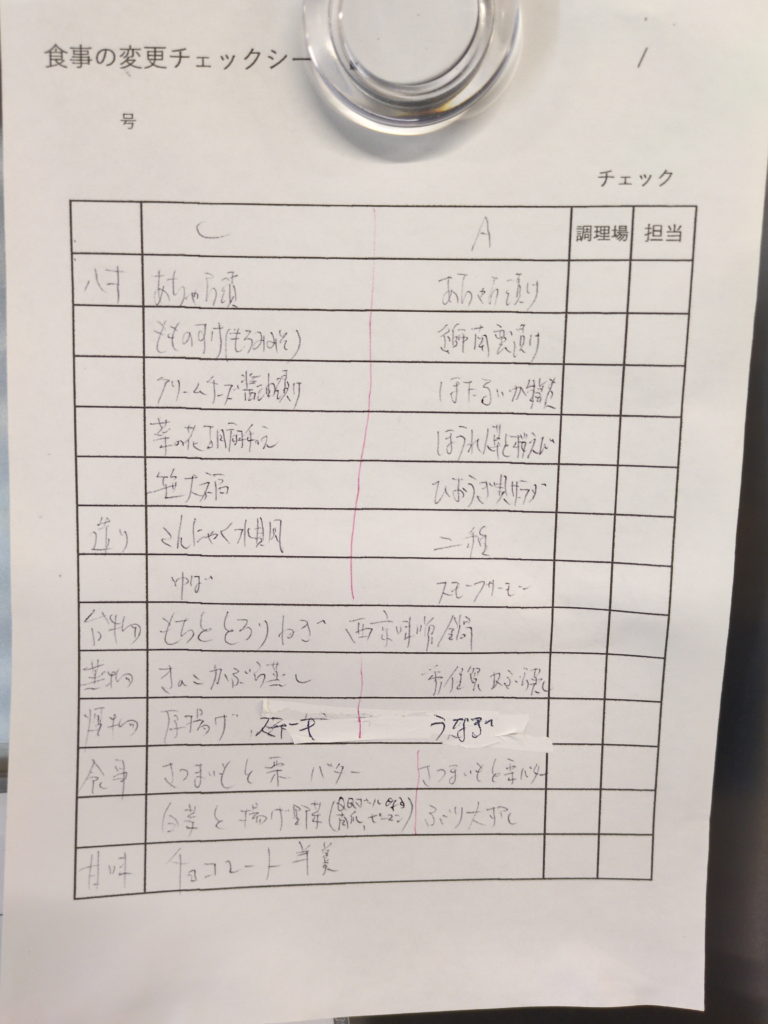 食事の変更チェックシー /
号
チェック
C A 調理場 担当
八寸 あちゃら漬 あちゃら漬け
もものすけ(もろみみそ) 南蛮漬け
クリームチーズ醤油漬け ほたるいか
菜の花胡麻和え ほうれん草と
笹大福 ひおうぎ貝
造り こんにゃく 二種
ゆば スモークサーモン
台物 もちととろりねぎ 西京味噌鍋
蒸物 きのこかぶら蒸し かぶら蒸し
厚揚げ ステーキ うなぎ
食事 さつまいもと栗 バター さつまいもと栗バター
白菜と揚げ野菜 ぶり大
甘味 チョコレート羊羹